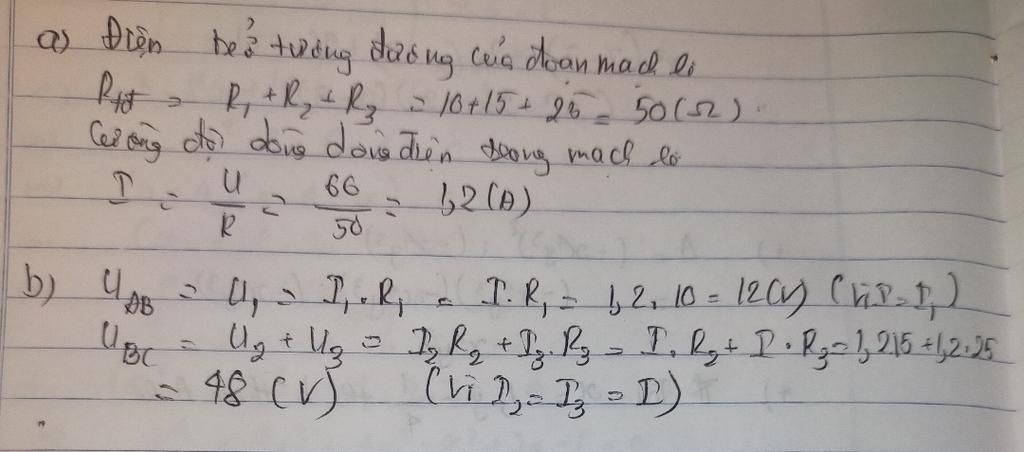 a) Điện trở tương đương của đoạn mạch là
Rtđ = R₁ + R₂ + R₃ = 10 + 15 + 25 = 50 (Ω).
Cường độ dòng dòng điện trong mạch là
I = U/R = 60/50 = 1,2 (A)
b) U_AB = U₁ = I₁ . R₁ = I . R₁ = 1,2 . 10 = 12 (V) (vì I = I₁)
U_BC = U₂ + U₃ = I₂ R₂ + I₃ . R₃ = I . R₂ + I . R₃ = 1,2 15 + 1,2 . 25
= 48 (V) (vì I₂ = I₃ = I)